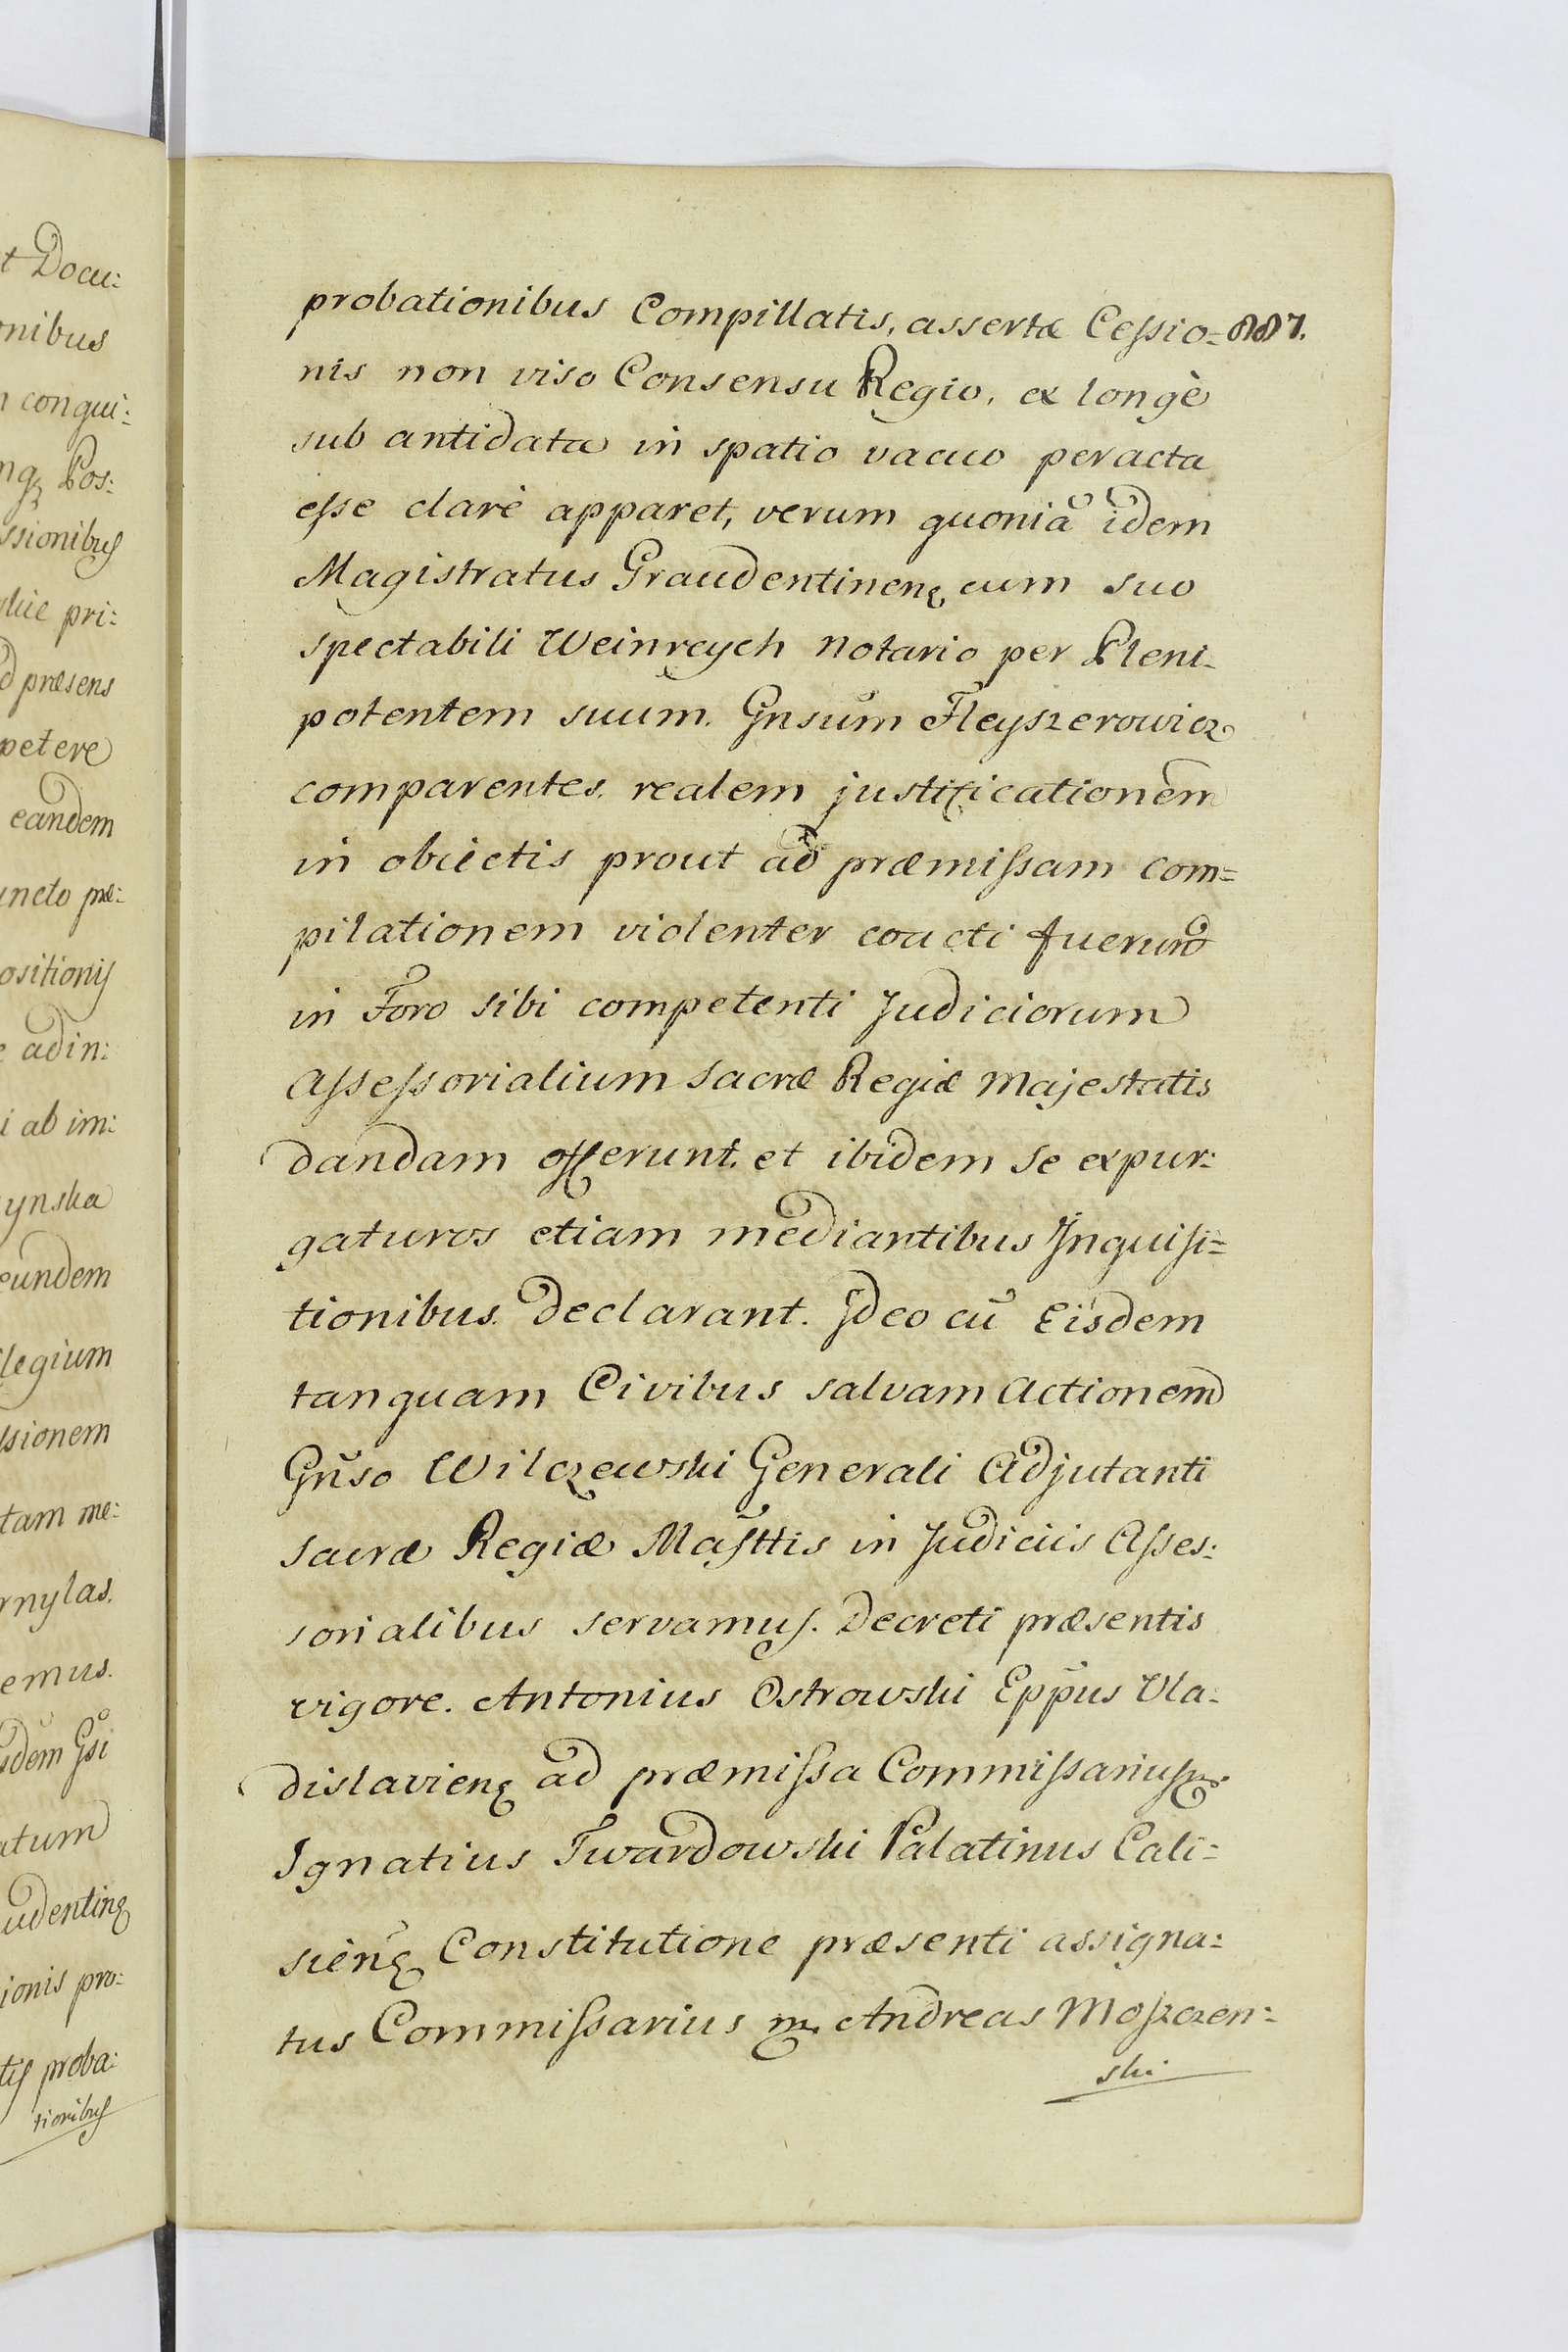 t Docu:
onibus
n conqui:
ngʒ Pos:
ssionibus
pri:
d præsens
petere
eandem
uncto præ:
ositionis
e adin:
i ab im:
ynska
eundem
legium
ssionem
tam me:
rnylas.
emus.
sdem Gsi
atum
udentinę
ionis pro:
tis proba:
tionibus
probationibus Compillatis, assertæ Cessio= 887.
nis non viso Consensu Regio, ex longè
sub antidata in spatio vacuo peracta
esse clarè apparet, verum quoniã idem
Magistratus Graudentinenę cum suo
spectabili Weinreych Notario per Pleni-
potentem suum. Gnsũm Fleyszerowicz
comparentes. realem justificationem
in obiectis prout ad præmissam com=
pilationem violenter coacti fuerunt
in Foro sibi competenti Judiciorum
Assessorialium Sacræ Regiæ Majestatis
dandam offerunt. et ibidem se expur:
gaturos etiam mediantibus Inquisi=
tionibus. declarant. Ideo cũ Eisdem
tanquam Civibus salvam Actionem
Gñso Wilczewski Generali Adjutanti
Sacræ Regiæ Masttis in Judiciis Asses:
sorialibus servamus. Decreti præsentis
vigore. Antonius Ostrowski Eppus Vla:
dislavienę ad præmissa Commissarius mp.
Ignatius Twardowski Palatinus Cali=
sienę Constitutione præsenti assigna:
tus Commissarius mp. Andreas Moszczen:
ski